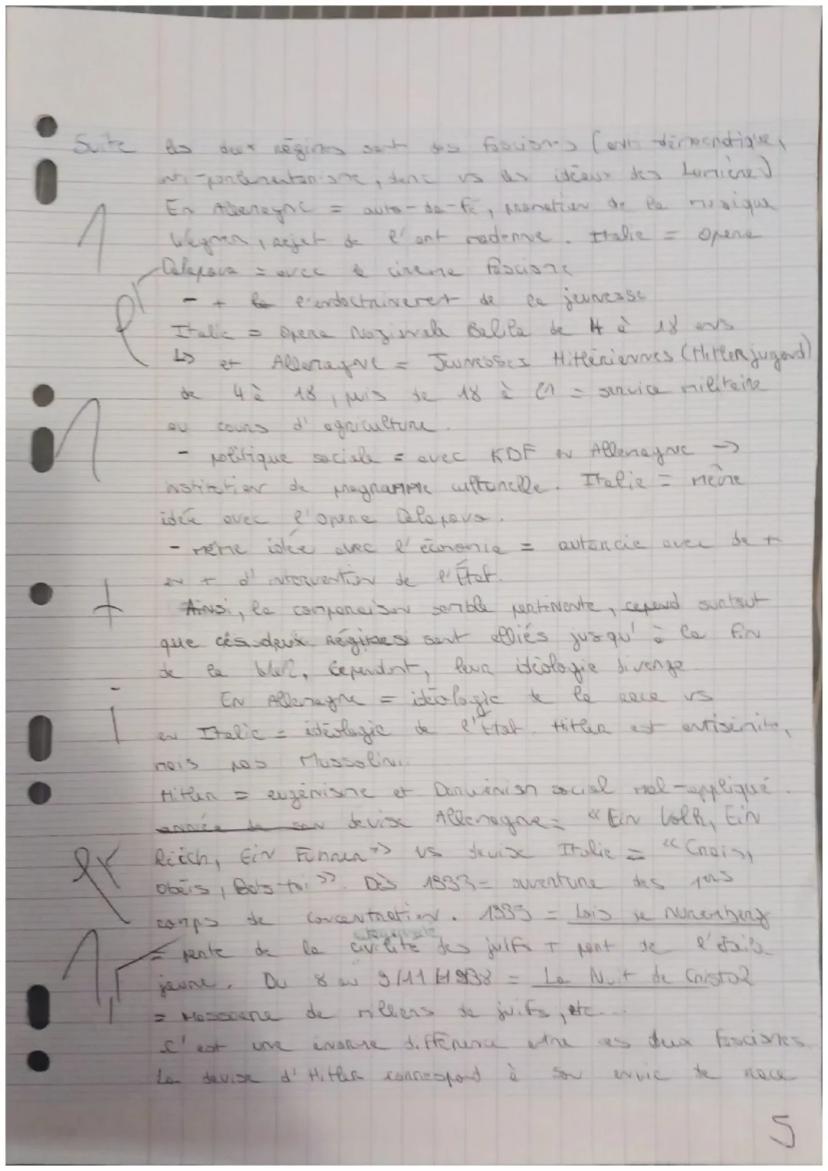 Suite les deux régimes sont des fascismes (anti démocratique,
anti-parlementarisme, donc vs les idéaux des Lumière)
En Allemagne = auto-da-fé, promotion de la musique
Wagner, rejet de l'art moderne. Italie = opera
Dolapova = avec le cinema fasciste
- + l'endoctrinement de la jeunesse
Italie = Opera Nazionale Balila de 4 à 18 ans
↳ et Allemagne = Jeunesses Hitlériennes (Hitlerjugend)
de 4 à 18, puis de 18 à 21 = service militaire
ou cours d'agriculture.
- politique sociale = avec KDF en Allemagne →
institution de programme culturelle. Italie = même
idée avec l'opera Dolapova.
- même idée avec l'économie = autarcie avec de +
en + d'intervention de l'État.
Ainsi, la comparaison semble pertinente, surtout
que ces deux régimes sont alliés jusqu'à la fin
de la WW2, Cependant, leur idéologie diverge
En Allemagne = idéologie de la race vs
en Italie = idéologie de l'État. Hitler est antisémite,
mais pas Mussolini.
Hitler = eugénisme et Darwinism social mal-appliqué.
devise Allemagne = "Ein Volk, Ein
Reich, Ein Führer" vs devise Italie = "Crois,
obéis, Bats-toi". Dès 1933 = ouverture des 1ers
camps de concentration. 1935 = Lois de Nuremberg
= perte de la citoyenneté des juifs + port de l'étoile
jaune. Du 8 au 9/11/1938 = La Nuit de Cristal
= Massacre de milliers de juifs, etc...
C'est une énorme différence entre les deux fascismes
La devise d'Hitler correspond à son envie de race
5